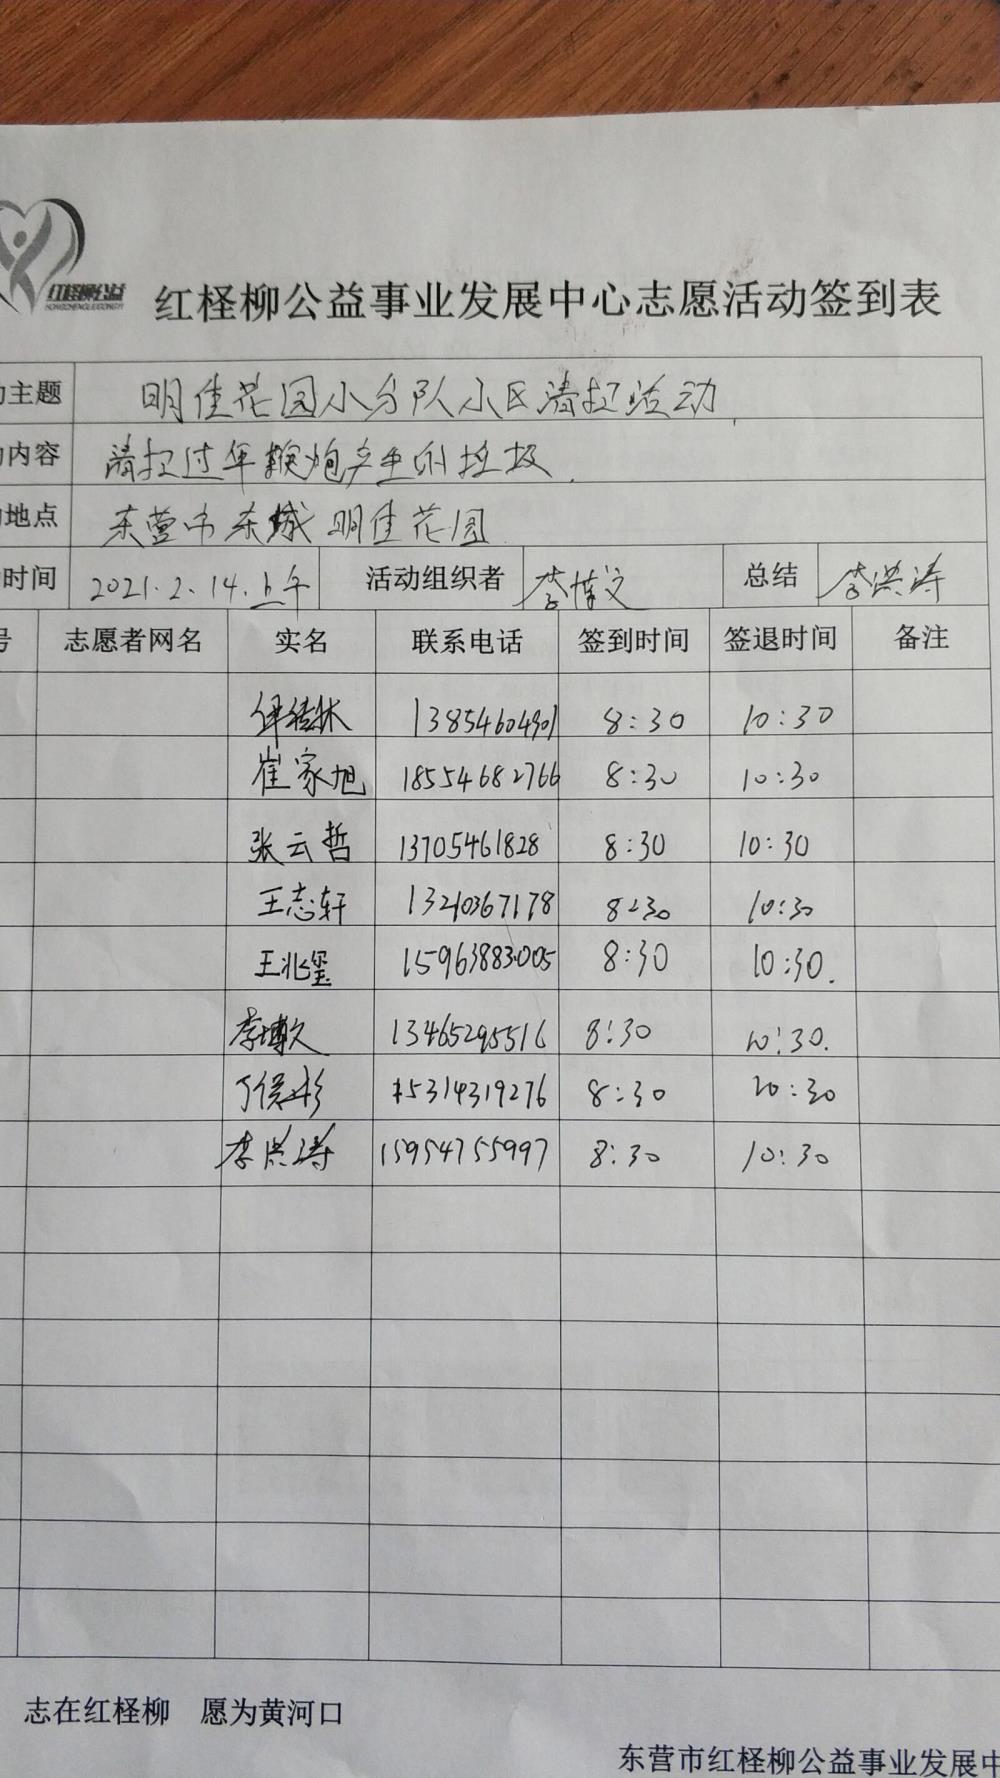 红柽柳公益
HONGCHENGLIUGONGYI
红柽柳公益事业发展中心志愿活动签到表
主题 明佳花园小分队小区清扫活动
内容 清扫过年鞭炮产生的垃圾
地点 东营市东城明佳花园
时间 2021.2.14.上午 活动组织者 李博文 总结 李洪涛
号 志愿者网名 实名 联系电话 签到时间 签退时间 备注
桂林 13854604901 8:30 10:30
崔家旭 18554682766 8:30 10:30
张云哲 13705461828 8:30 10:30
王志轩 13210367178 8:30 10:30
王兆玺 15963883005 8:30 10:30.
李博文 13465295516 8:30 10:30.
丁俊彩 15314319276 8:30 10:30
李洪涛 15954755997 8:30 10:30
志在红柽柳 愿为黄河口
东营市红柽柳公益事业发展中